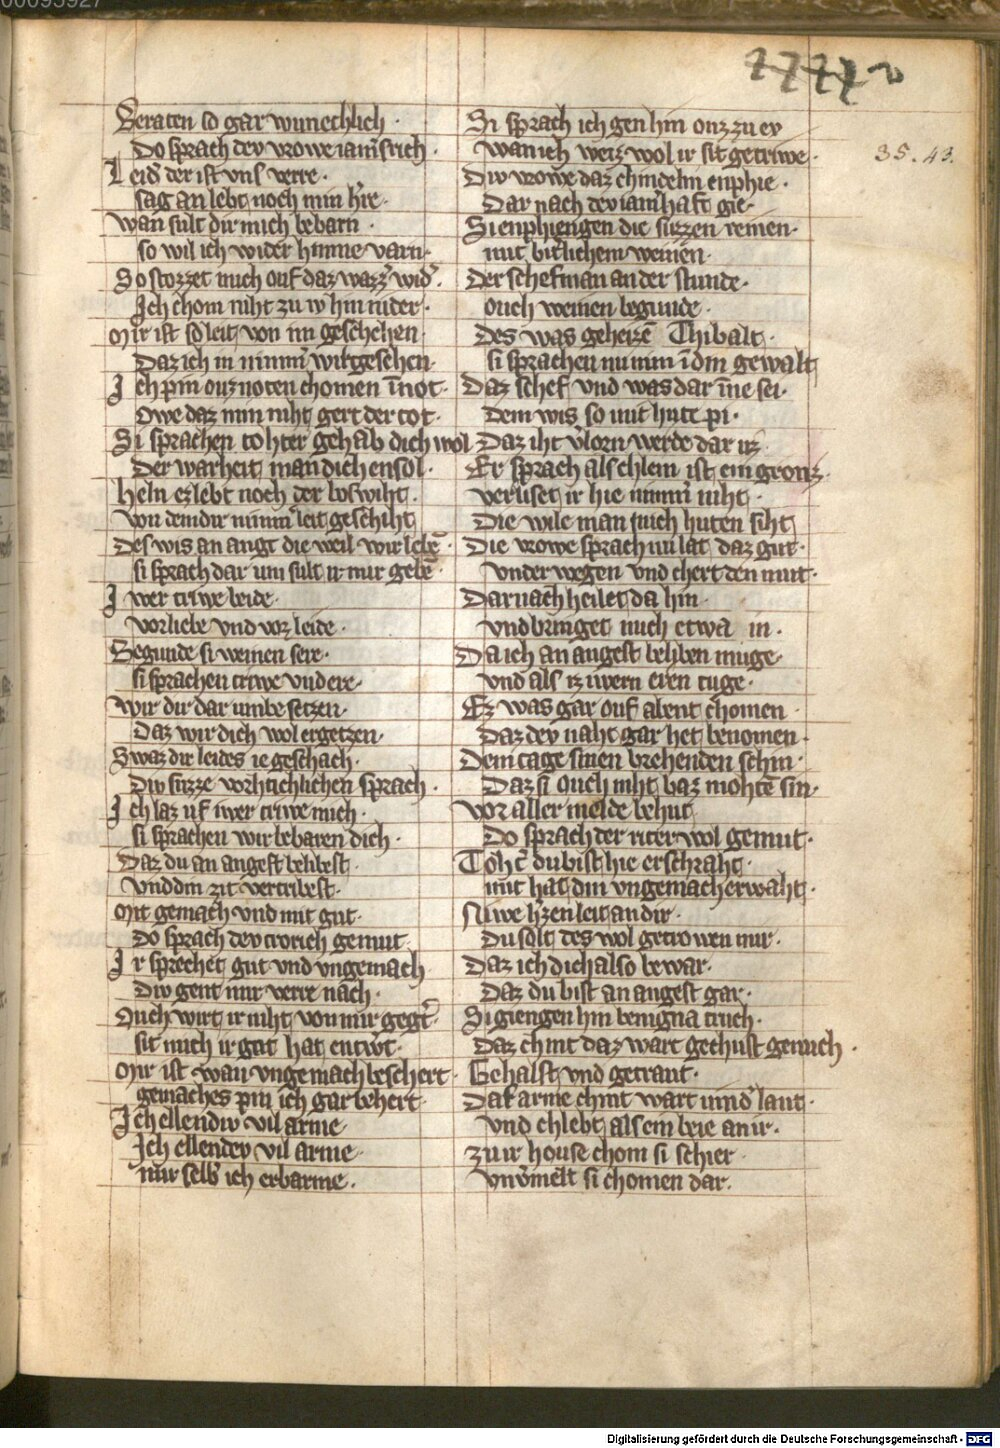 Beraten so gar wunechlich ·
Do sprach dev vrowe iam̄srich ·
Leid͛ der ist vns verre ·
sag an lebt noch min h͛re ·
wan sult dir mich bebarn ·
so wil ich wider hinne varn ·
So stozzet mich ouf daz wazz͛ wid͛ ·
Ich chom niht zu iv hin nider ·
Mir ist so leit von im geschehen ·
Daz ich in nimm͛ wirt gesehen ·
Ich pin ouz noten chomen īnot ·
Owe daz min niht gert der tot ·
Si sprachen tohter gehab dich wol
Der warheit man dich ensol ·
heln ez lebt noch der boswiht ·
von dem dir nimm͛ leit geschiht
Des wis an angt die weil wir lebē ·
si sprach dar um sult ir mir gebē ·
Iwer triwe beide ·
vor liebe vnd vor leide ·
Begunde si weinen sere ·
si sprachen triwe vnd ere ·
wir dir dar umbe setzen ·
Daz wir dich wol ergetzen ·
Swaz dir leides ie geschach ·
Div suzze vorhtichlichen sprach ·
Ich laz uf iwer triwe mich ·
si sprachen wir bebaren dich ·
Daz du an angest belibest ·
vnd din zit vertribest ·
Mit gemach vnd mit gut ·
Do sprach dev trorich gemut
Ir sprechet gut vnd vngemach
Div gent mir verre nach ·
Ouch wirt ir niht von mir gegt͛ ·
sit mich ir gat hat entw͛t ·
Mir ist wan vngemach beschert ·
gemaches pin ich gar behert ·
Ich ellendiv vil arme ·
Ich ellendev vil arme ·
mir selb͛ ich erbarme ·
Si sprach ich gen hin onz zu ev
wan ich weiz wol ir sit getriwe ·
Div vrowe daz chindelin enphie ·
Dar nach dev iam͛haft gie ·
Si enphiengen die suzzen reinen ·
mit bit͛lichem weinen ·
Der schefman an der stunde ·
ouch weinen begunde ·
Des was geheizē Thibalt ·
si sprachen nu nim ī din gewalt
Daz schef vnd was dar īne sei ·
Dem wis so mit hute pi ·
Daz iht v͛lorn werde dar uz
Er sprach als chlein ist ein gronz
verliset ir hie nimm͛ niht ·
Die wile man mich huten siht
Die vrowe sprach nu lat daz gut ·
vnder wegen vnd chert den mut ·
Dar nach heilet da hin
vnd bringet mich etwa in ·
Da ich an angest beliben muge ·
vnd als iz iwern eren tuge ·
Ez was gar ouf abent chomen ·
Daz dev naht gar het benomen ·
Dem tage sinen brehenden schin ·
Daz si ouch niht baz mohtē sin ·
vor aller melde behut
Do sprach der riter wol gemut ·
Toht͛ du bist hie erschraht ·
mit hat din vngemach erwaht ·
Niwe h͛zen leit an dir ·
Du solt des wol getrowen mir ·
Daz ich dich also bewar ·
Daz du bist an angest gar ·
Si giengen hin benigna truch ·
Daz chint daz wart gechust genuch ·
Gehalst vnd getraut ·
Daz arme chint wart nind͛ laut ·
vnd chlebt als ein brie an ir ·
zu ir house chom si schier
vnv͛melt si chomen dar ·
35. 43.
Digitalisierung gefördert durch die Deutsche Forschungsgemeinschaft · DFG